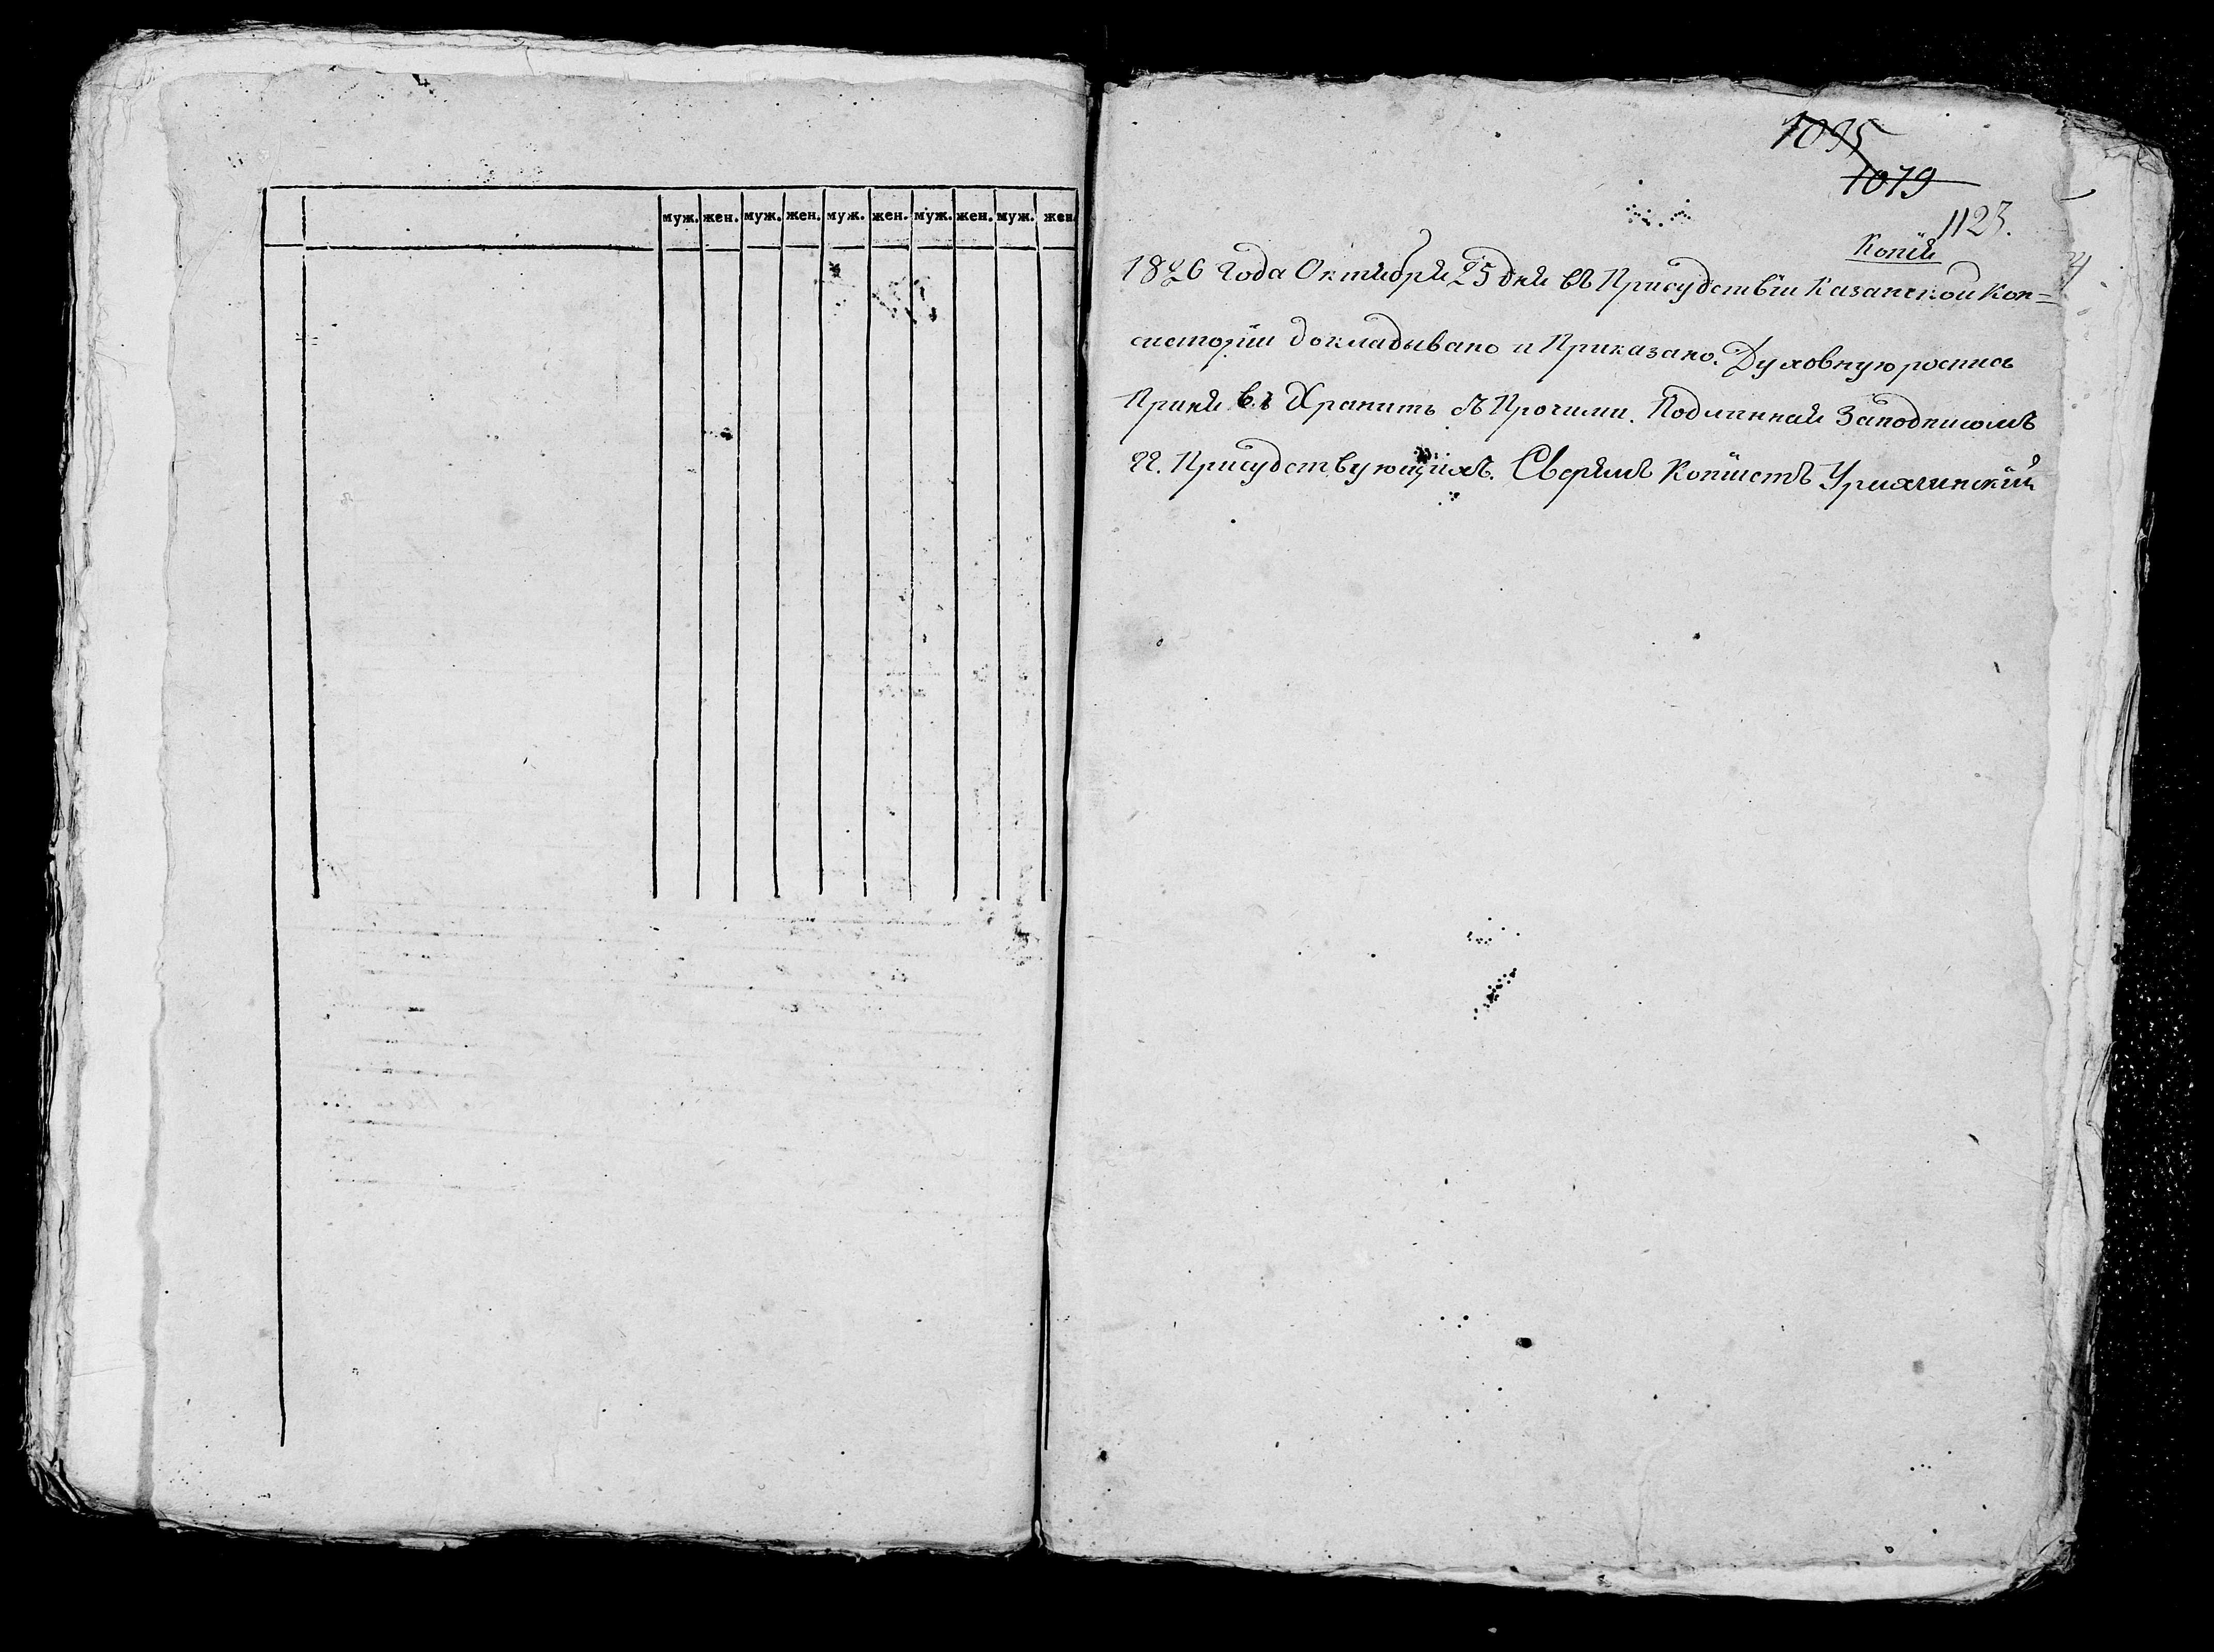 муж. жен. муж. жен. муж. жен. муж. жен. муж. жен.
1095
1079
1123.
Копія
1826 года Октября 25 дня въ Присудствіи Казанской Кон=
систоріи докладывано и Приказано. Духовную роспись
Приня въ Хранить съ Прочими. Подлинная Заподписомъ
гг. Присудствующихъ. Сверялъ Копіистъ